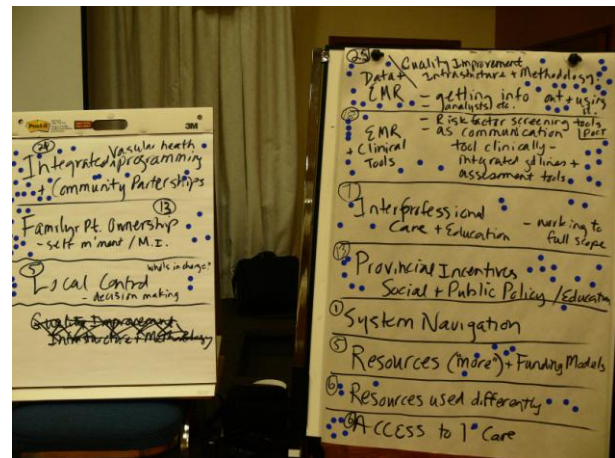 Post-it
3M
24
Vasular heath
Integrated programming
+ Community Parterships
13
Family, Pt. Ownership
- self m'ment / M.I.
5
who's in charge?
Local Control
- decision making
Quality Improvement
Infrastructure + Methodology
25
Quality Improvement
Data + Infrastructure + Methodology
EMR - getting info out + using it.
(analysts) etc.
- Risk factor screening tools
EMR - as communication
+ Clinical tool clinically -
Tools integrated g'lines +
assessment tools
7
Interprofessional
Care + Education - working to
full scope
13
Provincial Incentives
Social + Public Policy / Education
1
System Navigation
5
Resources ("more") + Funding Models
6
Resources used differently
6
ACCESS to 1° Care